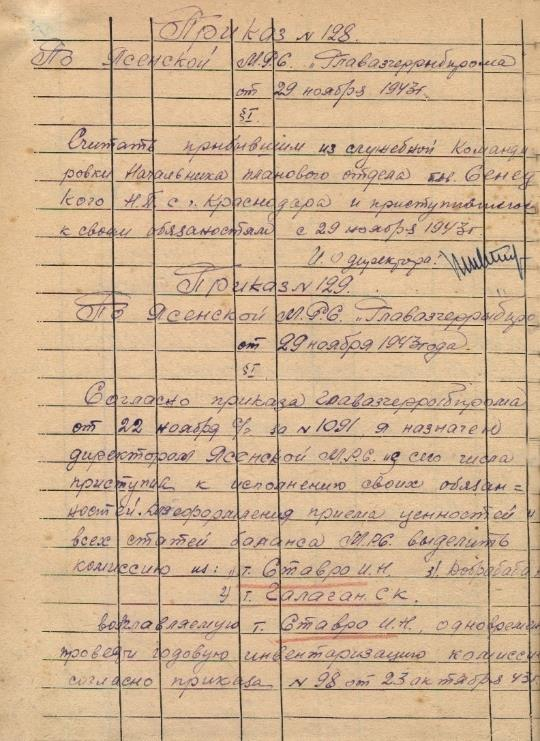 Приказ № 128.
По Ясенской М.Р.С. „Главазчеррыбпрома
от 29 ноября 1943г.
§I.
Считать прибывшим из служебной Команди-
ровки Начальника планового отдела тов. Сенец
кого Н.П. с г. Краснодара и приступившего
к своим обязаностям с 29 ноября 1943г
И.О директора.
Приказ № 129.
По Ясенской М.Р.С. „Главазчеррыбпро
от 29 ноября 1943 года.
§I.
Согласно приказа Главазчеррыбпрома
от 22 ноября с/г за № 1091 я назначен
директором Ясенской М.Р.С. и с сего числа
приступил к исполнению своих обязан=
ностей. Для оформления приема ценностей и
всех статей баланса М.Р.С. выделить
комиссию из: 1) т. Ставро И.Н. 3) Добрабаба
2) т. Галаган С.К.
возглавляемую т. Ставро И.Н., одновремен
проведя годовую инвентаризацию комисси
согласно приказа № 98 от 23 актября 43г.